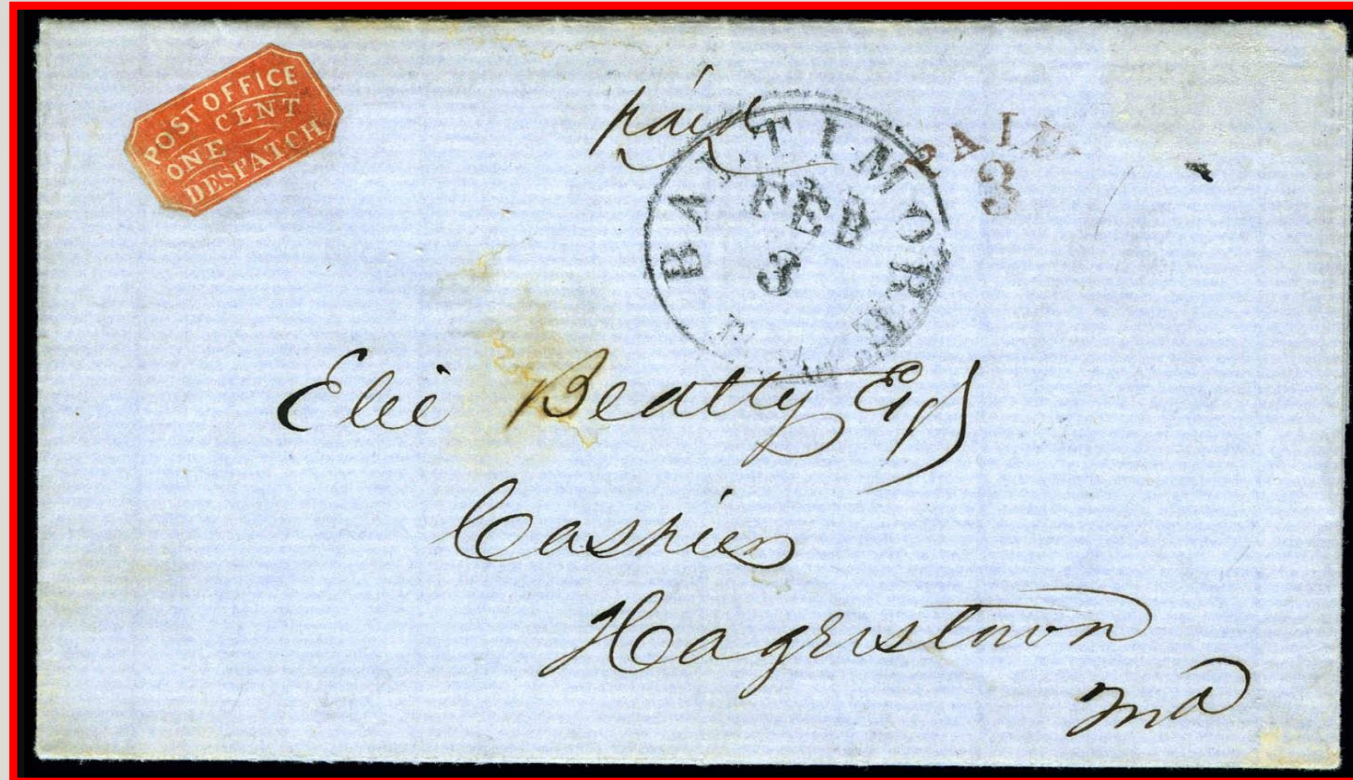 POST OFFICE
ONE CENT
DESPATCH
paid
BALTIMORE
FEB
3
PAID
3
Elie Beatty Esq
Cashier
Hagerstown
Md